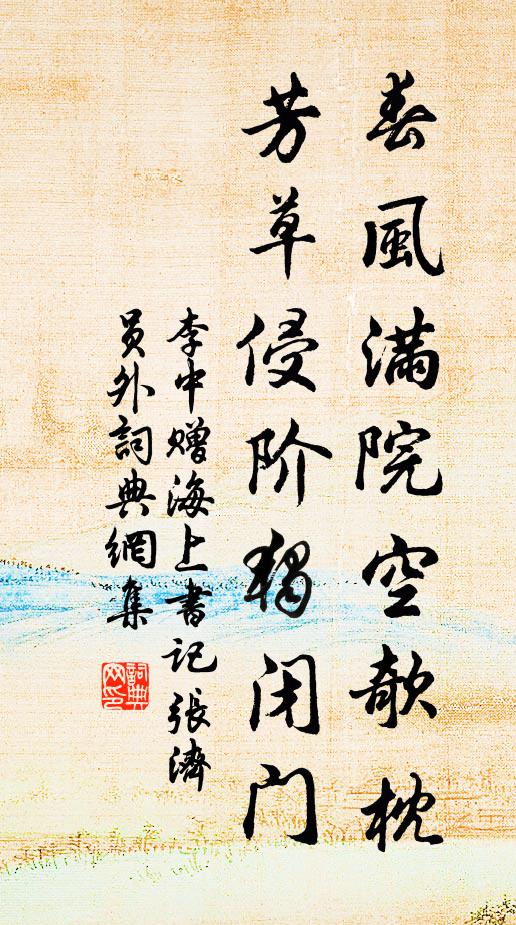 春風滿院空欹枕
芳草侵阶獨闭门
李中赠海上書记張濟
员外詞典網集
詞典網印